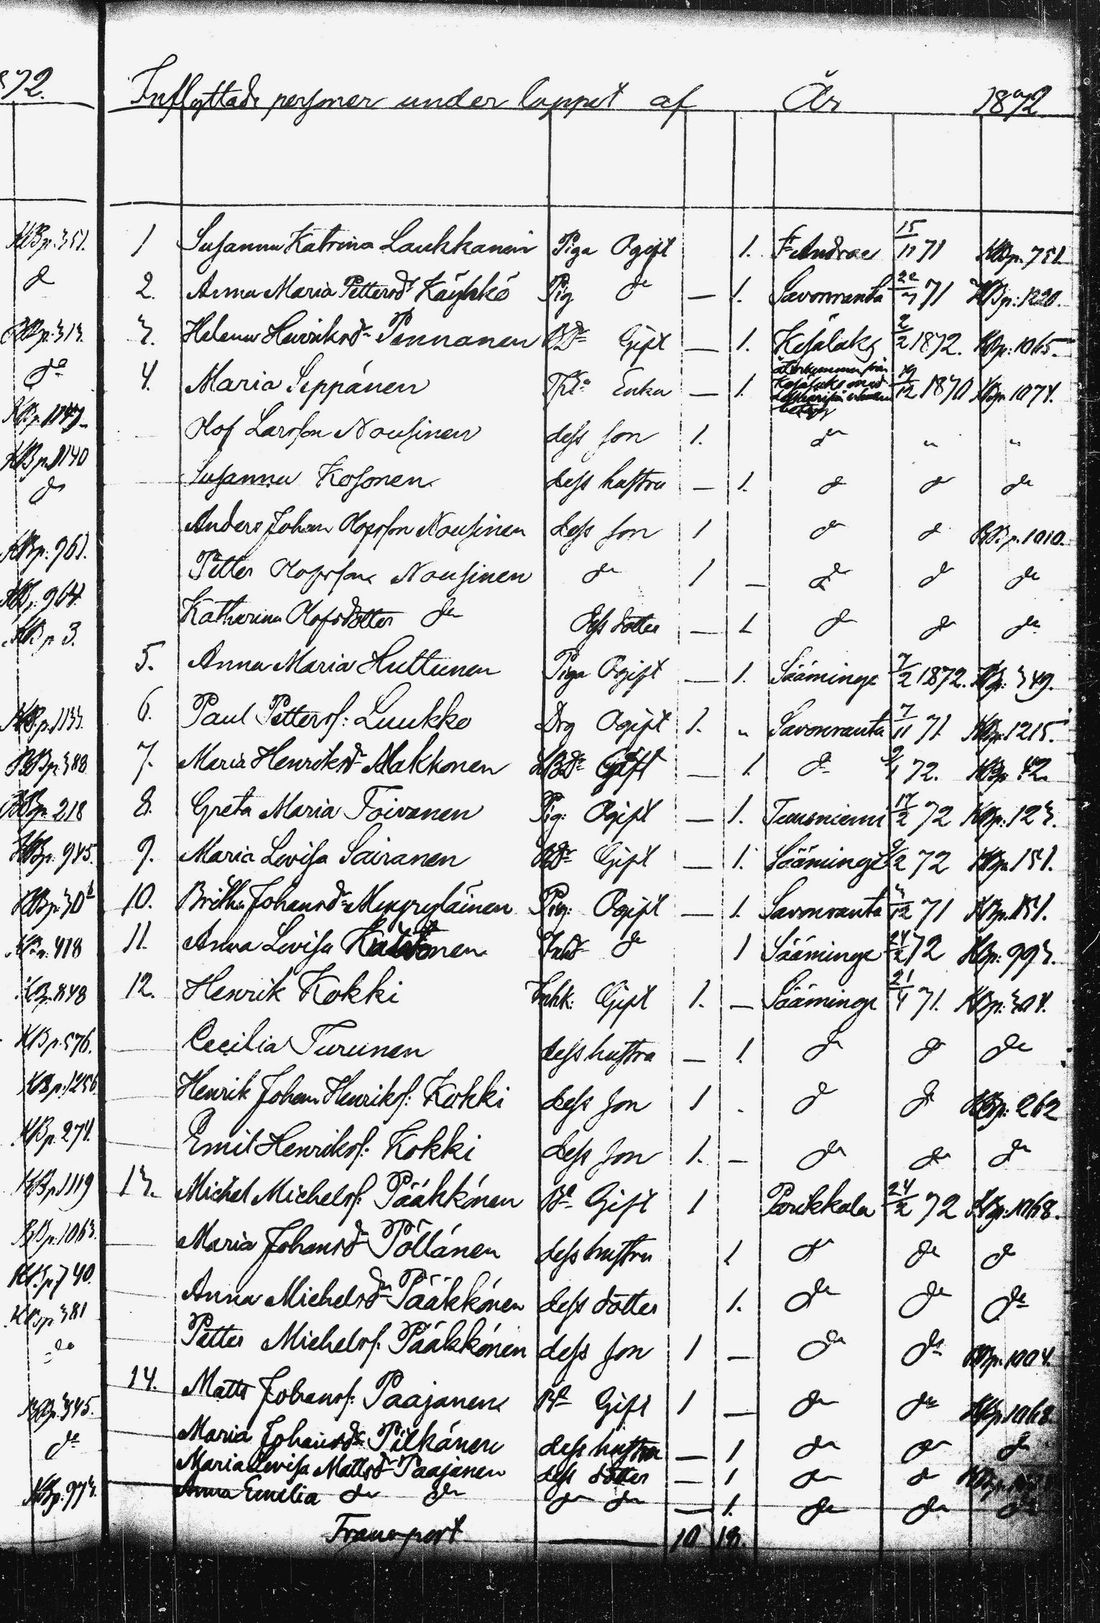 872.
Inflyttade personer under loppet af År 1872
KBp. 351. 1 Susanna Katrina Laukkanen Piga Ogift 1. F Andrae 15/11 71 KBp. 751.
do 2. Anna Maria Pettersdr Käyhkö Pig do — 1. Savonranta 22/7 71 KBp. 1220.
KBp. 313. 3. Helena Henriksdr Pennanen Gift — 1. Kesälaks 2/2 1872. KBp. 1065
do 4. Maria Seppänen Enka — 1. återkommen från Kesälaks med 19/12 1870 KBp. 1074.
KBp. 1147. Olof Larsson Nousinen dess son 1. do " "
KBp. 1140 Susanna Kosonen dess hustru — 1. do do do
do
Anders Johan Olofsson Nousinen dess son 1 do do KBp. 1010.
KBp. 961. Petter Olofsson Nousinen do 1 — do do do
KBp. 964.
KBp. 3. Katharina Olofsdotter do dess dotter — 1 do do do
5. Anna Maria Huttunen Piga Ogift — 1. Sääminge 7/2 1872. KBp. 349.
KBp. 1133. 6. Paul Petterss: Luukko Drg Ogift 1. " Savonranta 7/11 71 KBp. 1215.
KBp. 388 7. Maria Henriksdr Makkonen Gift — 1. do 72. KBp. 42.
KBp. 218 8. Greta Maria Toivanen Pig: Ogift — 1. Tuusniemi 17/2 72 KBp. 123.
KBp. 945. 9. Maria Lovisa Sairanen Gift — 1. Sääminge 72 KBp. 151.
KBp. 301 10. Britha Johansdr Myyryläinen Pig: Ogift — 1. Savonranta 71 KBp. 151.
KBp. 418 11. Anna Lovisa do 1 Sääminge 24/2 72 KBp. 993.
KBp. 848 12. Henrik Kokki Inhk: Gift 1. — Sääminge 21/4 71. KBp. 304.
KBp. 576. Cecilia Turunen dess hustru — 1. do do do
KBp. 1256 Henrik Johan Henrikss: Kokki dess son 1 . do do KBp. 262
KBp. 274. Emil Henrikss: Kokki dess son 1. — do do do
KBp. 1119 13. Michel Michelss: Pääkkönen Gift 1 Parikkala 24/2 72 KBp. 1068.
KBp. 1063. Maria Johansdr Pöllänen dess hustru 1 do do do
KBp. 740.
KBp. 381 Anna Michelsdr Pääkkönen dess dotter 1. do do do
do Petter Michelss: Pääkkönen dess son 1 — do do KBp. 1004.
KBp. 345. 14. Matts Johanss: Paajanen Gift 1 — do do KBp. 1068
do Maria Johansdr Pitkänen dess hustru — 1 do do do
Maria Lovisa Mattsdr Paajanen dess dotter — 1 do do
KBp. 973. Anna Emelia do do do do — 1. do do do
Transport 10 18.